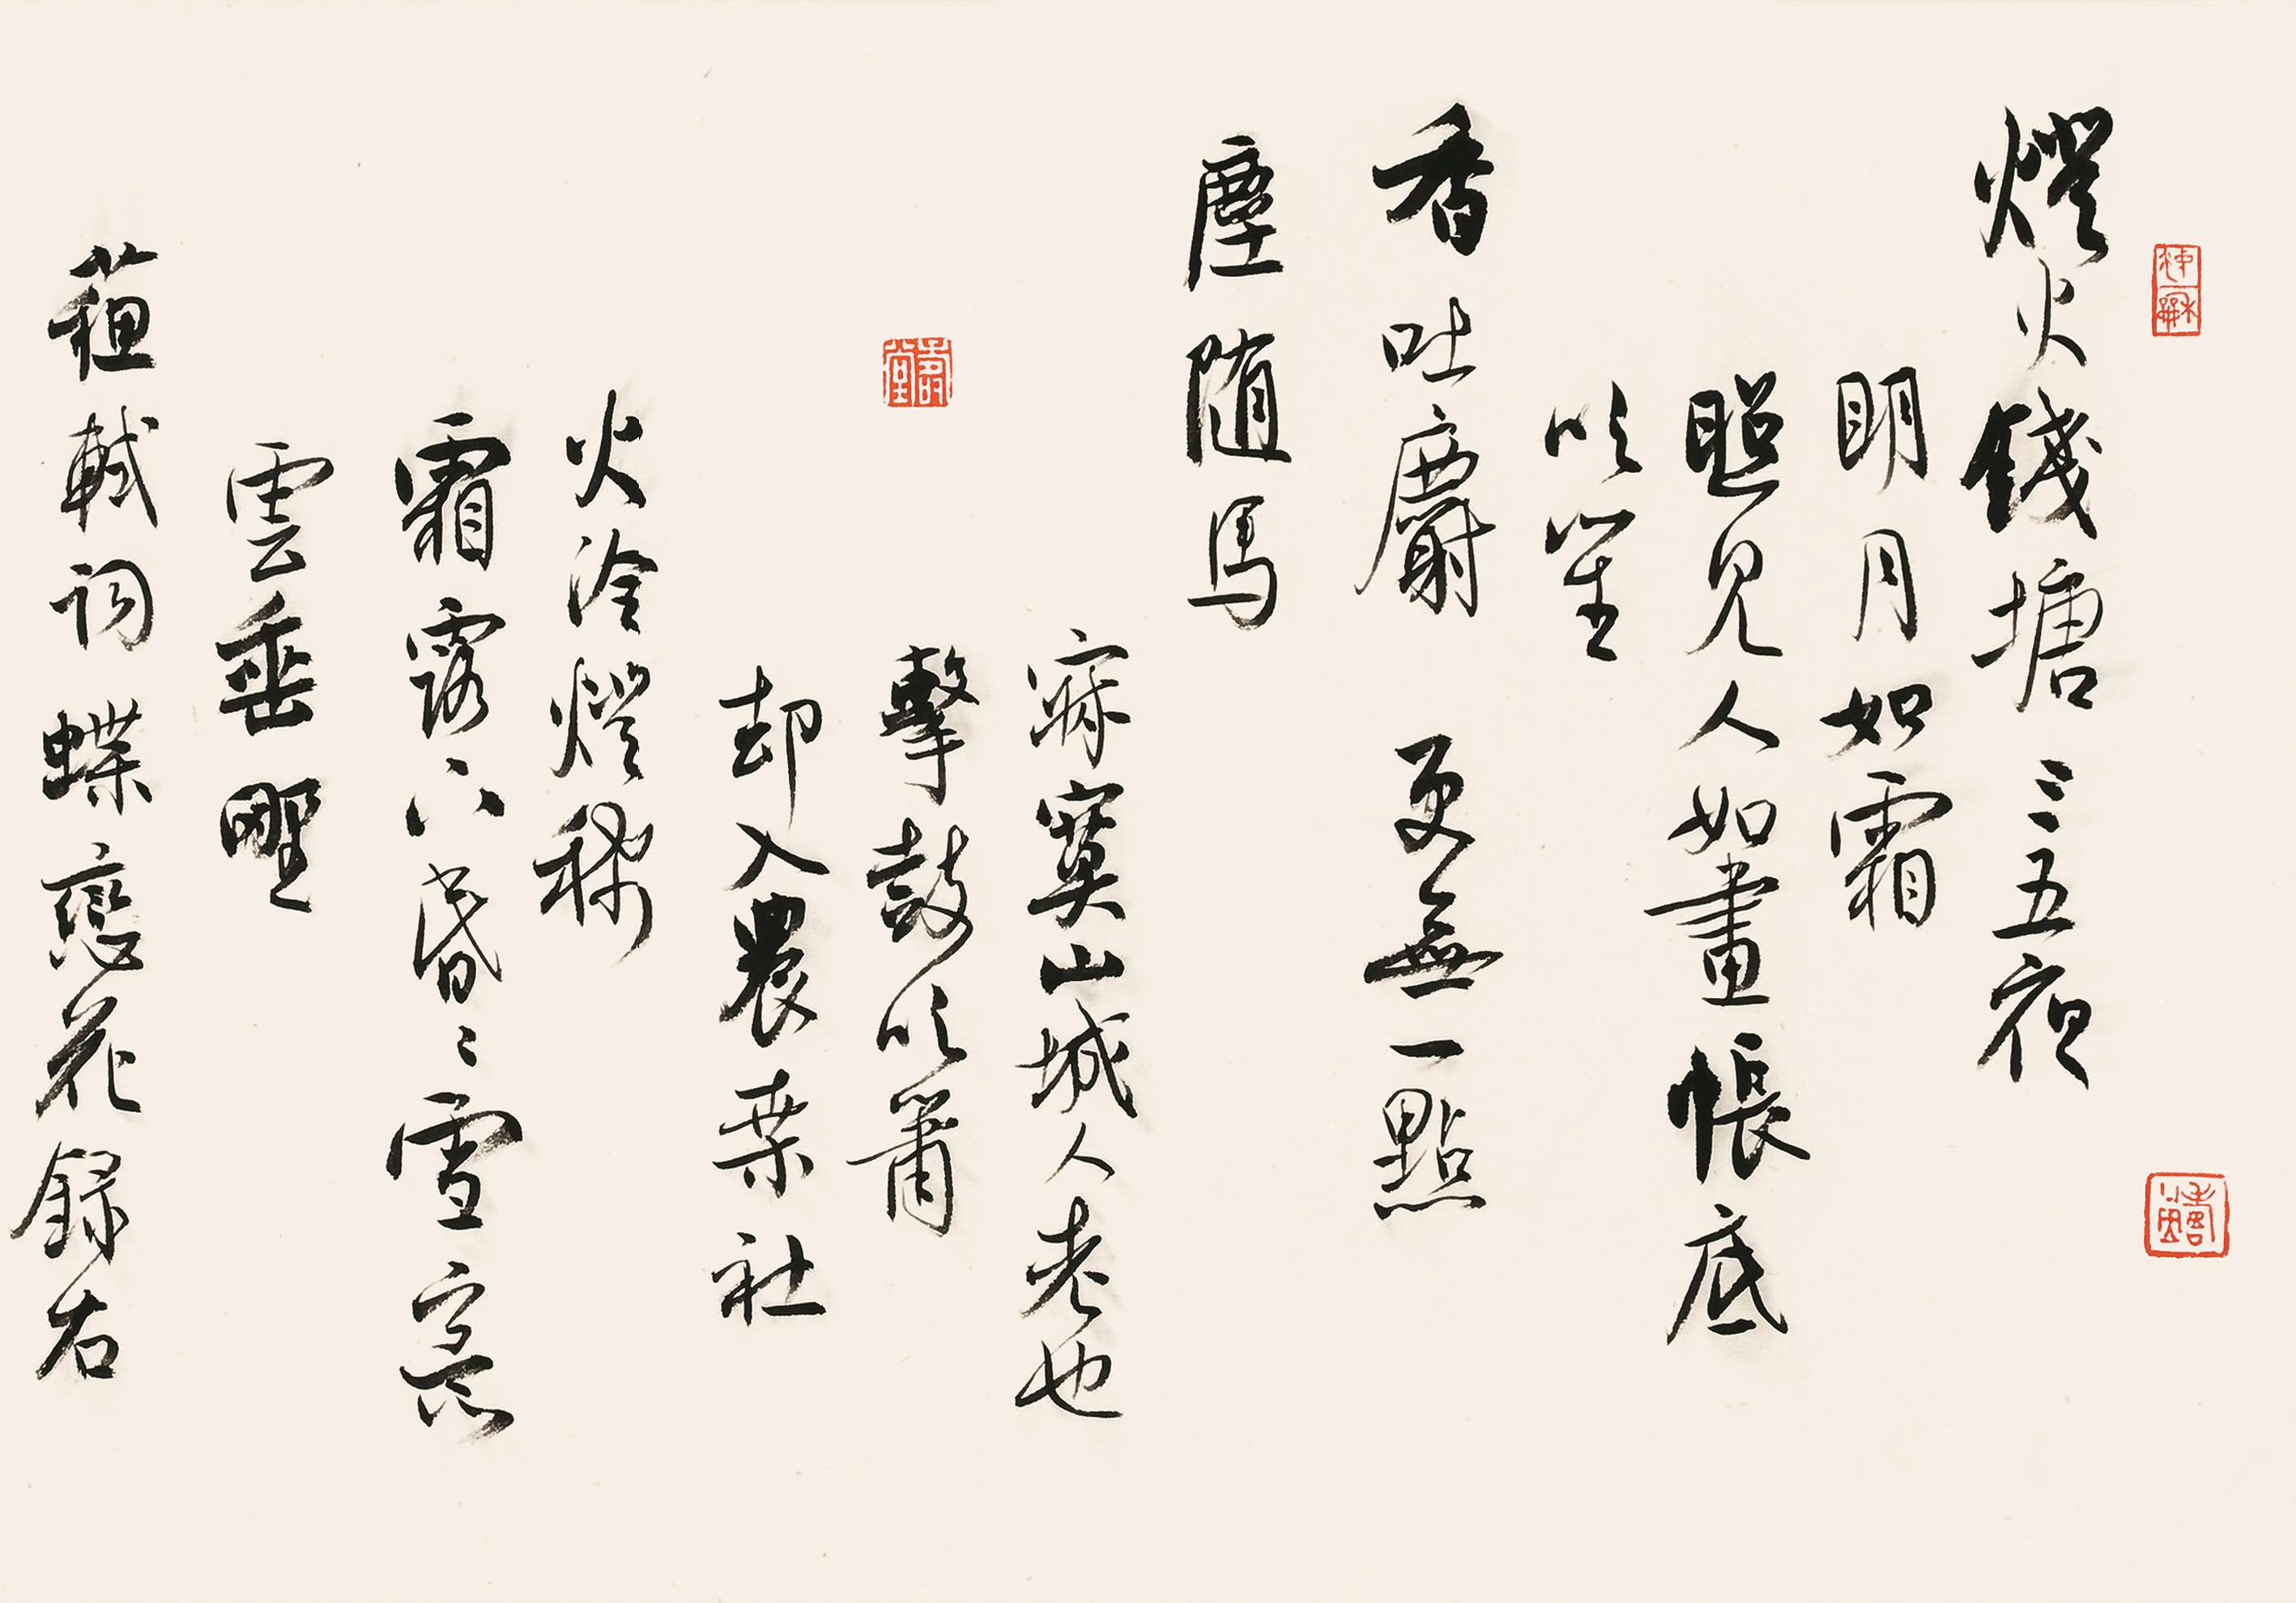 燈火錢塘三五夜
明月如霜
照見人如畫帳底
吹笙
香吐麝更無一點
塵随馬
寂寞山城人老也
擊鼓吹簫
却入農桑社
火冷燈稀
霜露下昏〻雪意
雲垂野
蘇軾詞蝶戀花録右